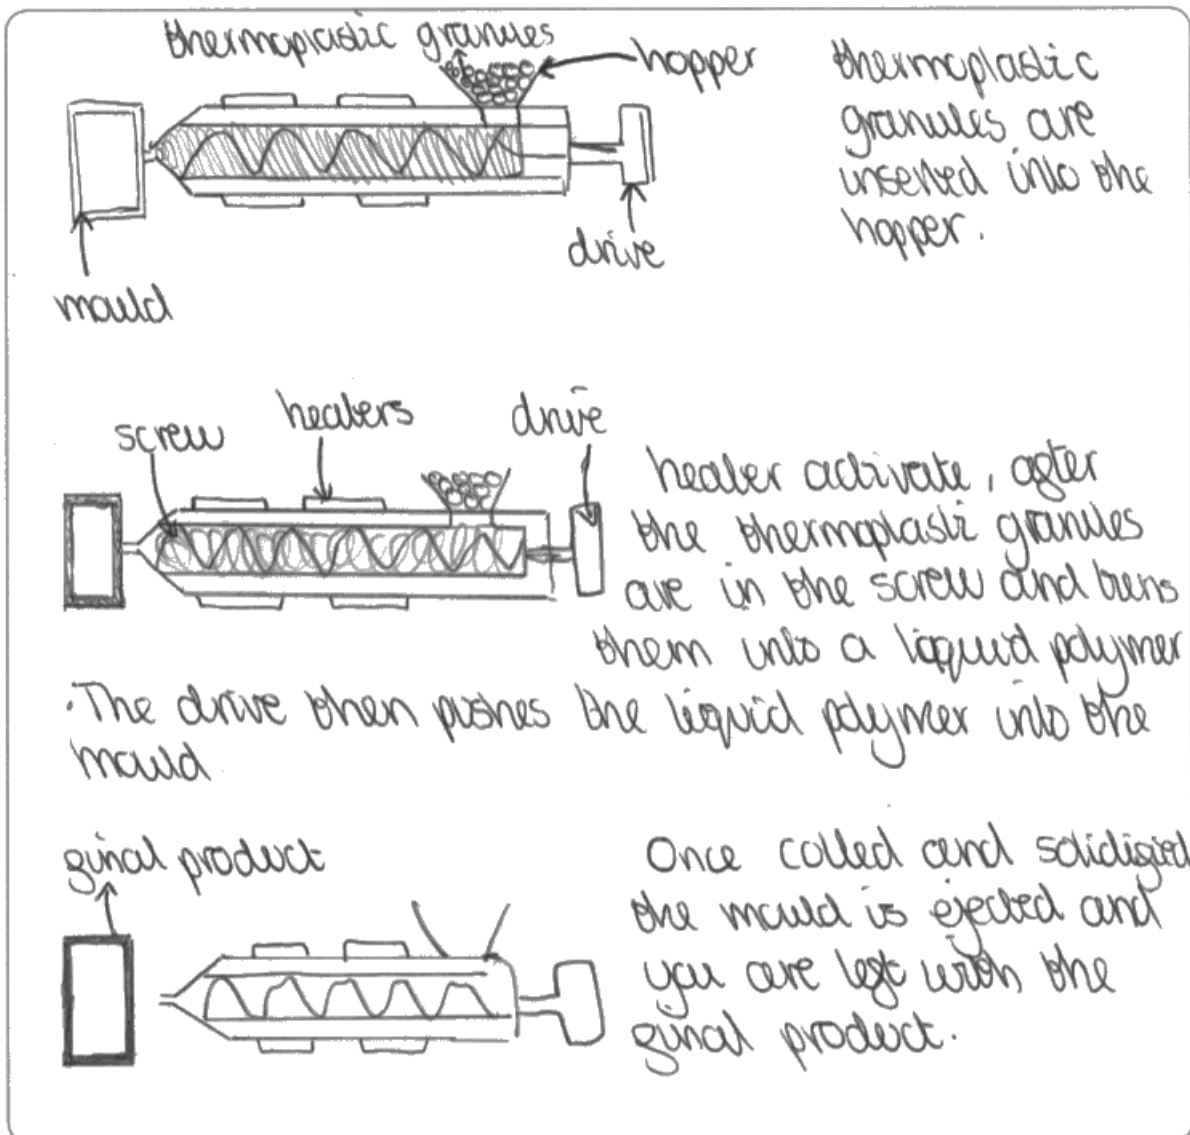 thermoplastic granules
hopper
thermoplastic
granules are
inserted into the
hopper.
drive
mould
screw
heaters
drive
heater activate, after
the thermoplastic granules
are in the screw and turns
them into a liquid polymer
·The drive then pushes the liquid polymer into the
mould
final product
Once colled and solidified
the mould is ejected and
you are left with the
final product.